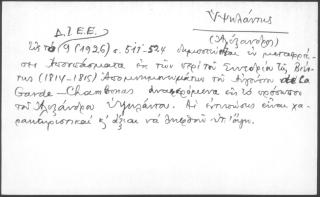 Ὑψηλάντης
(Ἀλέξανδρος)
Δ.Ι.Ε.Ε.
Εἰς τὸ (9 (1926) σ. 517-524 δημοσιεύεται ἐν μεταφρά-
σει Ἀποσπάσματα ἐκ τῶν περὶ τοῦ Συνεδρίου τῆς Βιέν-
νης (1814-1815) Ἀπομνημονευμάτων τοῦ Αὐγούστου de La
Garde-Chambonas ἀναφερόμενα εἰς τὸ πρόσωπον
τοῦ Ἀλεξάνδρου Ὑψηλάντου. Αἱ ἐντυπώσεις εἶναι χα-
ρακτηριστικαὶ κ' ἄξιαι νὰ ληφθοῦν ὑπ' ὄψη.